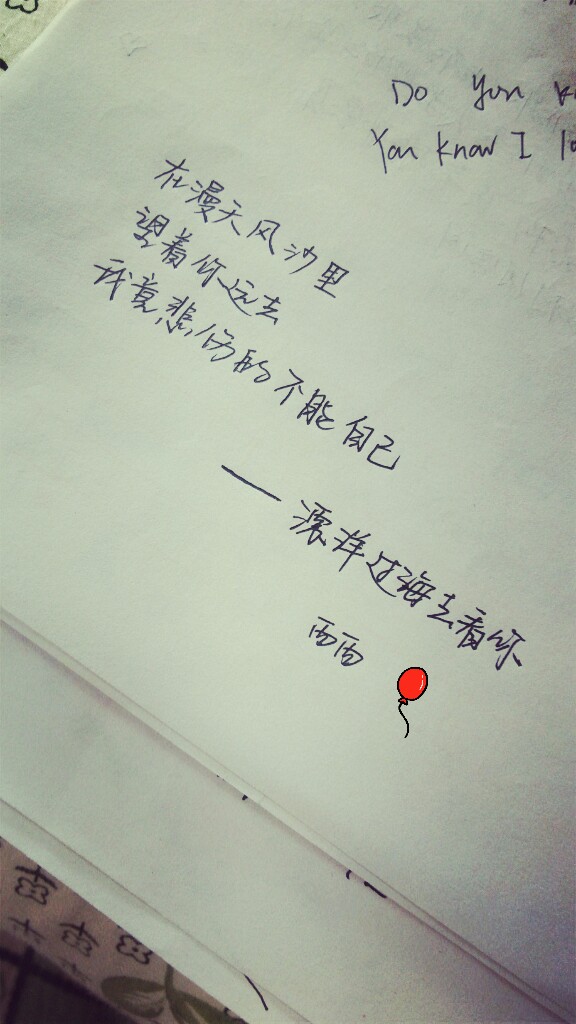 Do you
You know I
在漫天风沙里
望着你远去
我竟悲伤的不能自己
——漂洋过海去看你
西西